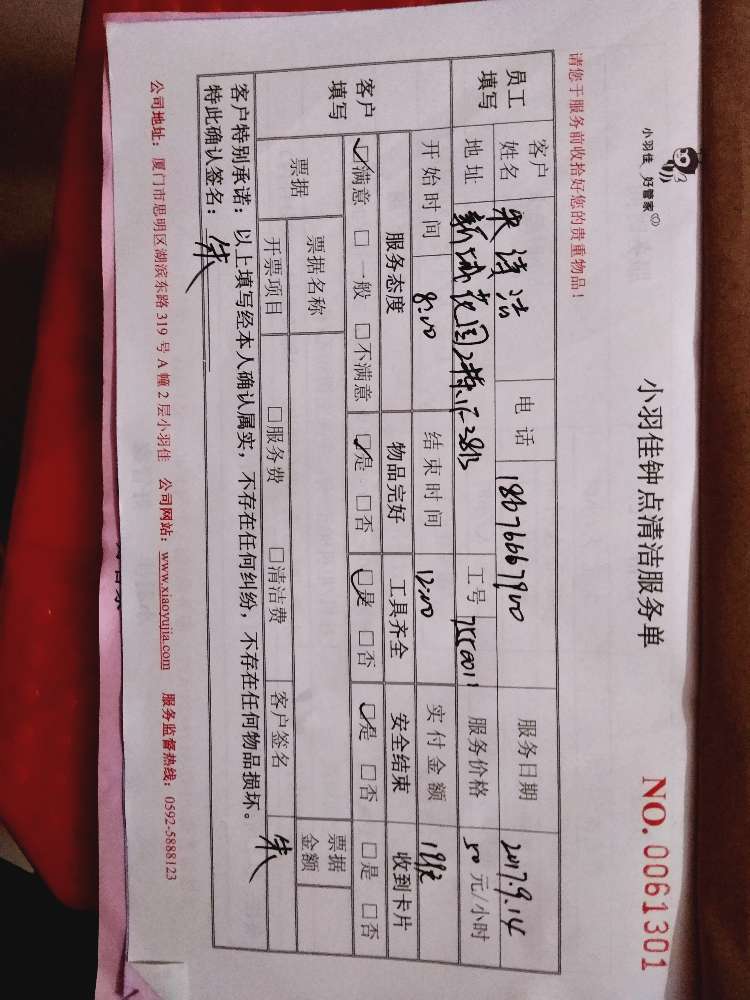 小羽佳 好管家
小羽佳钟点清洁服务单
NO.0061301
请您于服务前收拾好您的贵重物品！
员工填写 客户姓名 电话 服务日期 2017.9.14
地址 新城花园2栋 工号 服务价格 50 元/小时
开始时间 8:00 结束时间 12:00 实付金额
客户填写 服务态度 物品完好 工具齐全 安全结束 收到卡片
☑满意 □一般 □不满意 ☑是 □否 ☑是 □否 ☑是 □否 □是 □否
票据 票据名称 票据金额
开票项目 □服务费 □清洁费 客户签名 朱
客户特别承诺：以上填写经本人确认属实，不存在任何纠纷，不存在任何物品损坏。
特此确认签名：朱
公司地址：厦门市思明区湖滨东路 319 号 A 幢 2 层小羽佳 公司网站：www.xiaoyujia.com 服务监督热线：0592-5888123